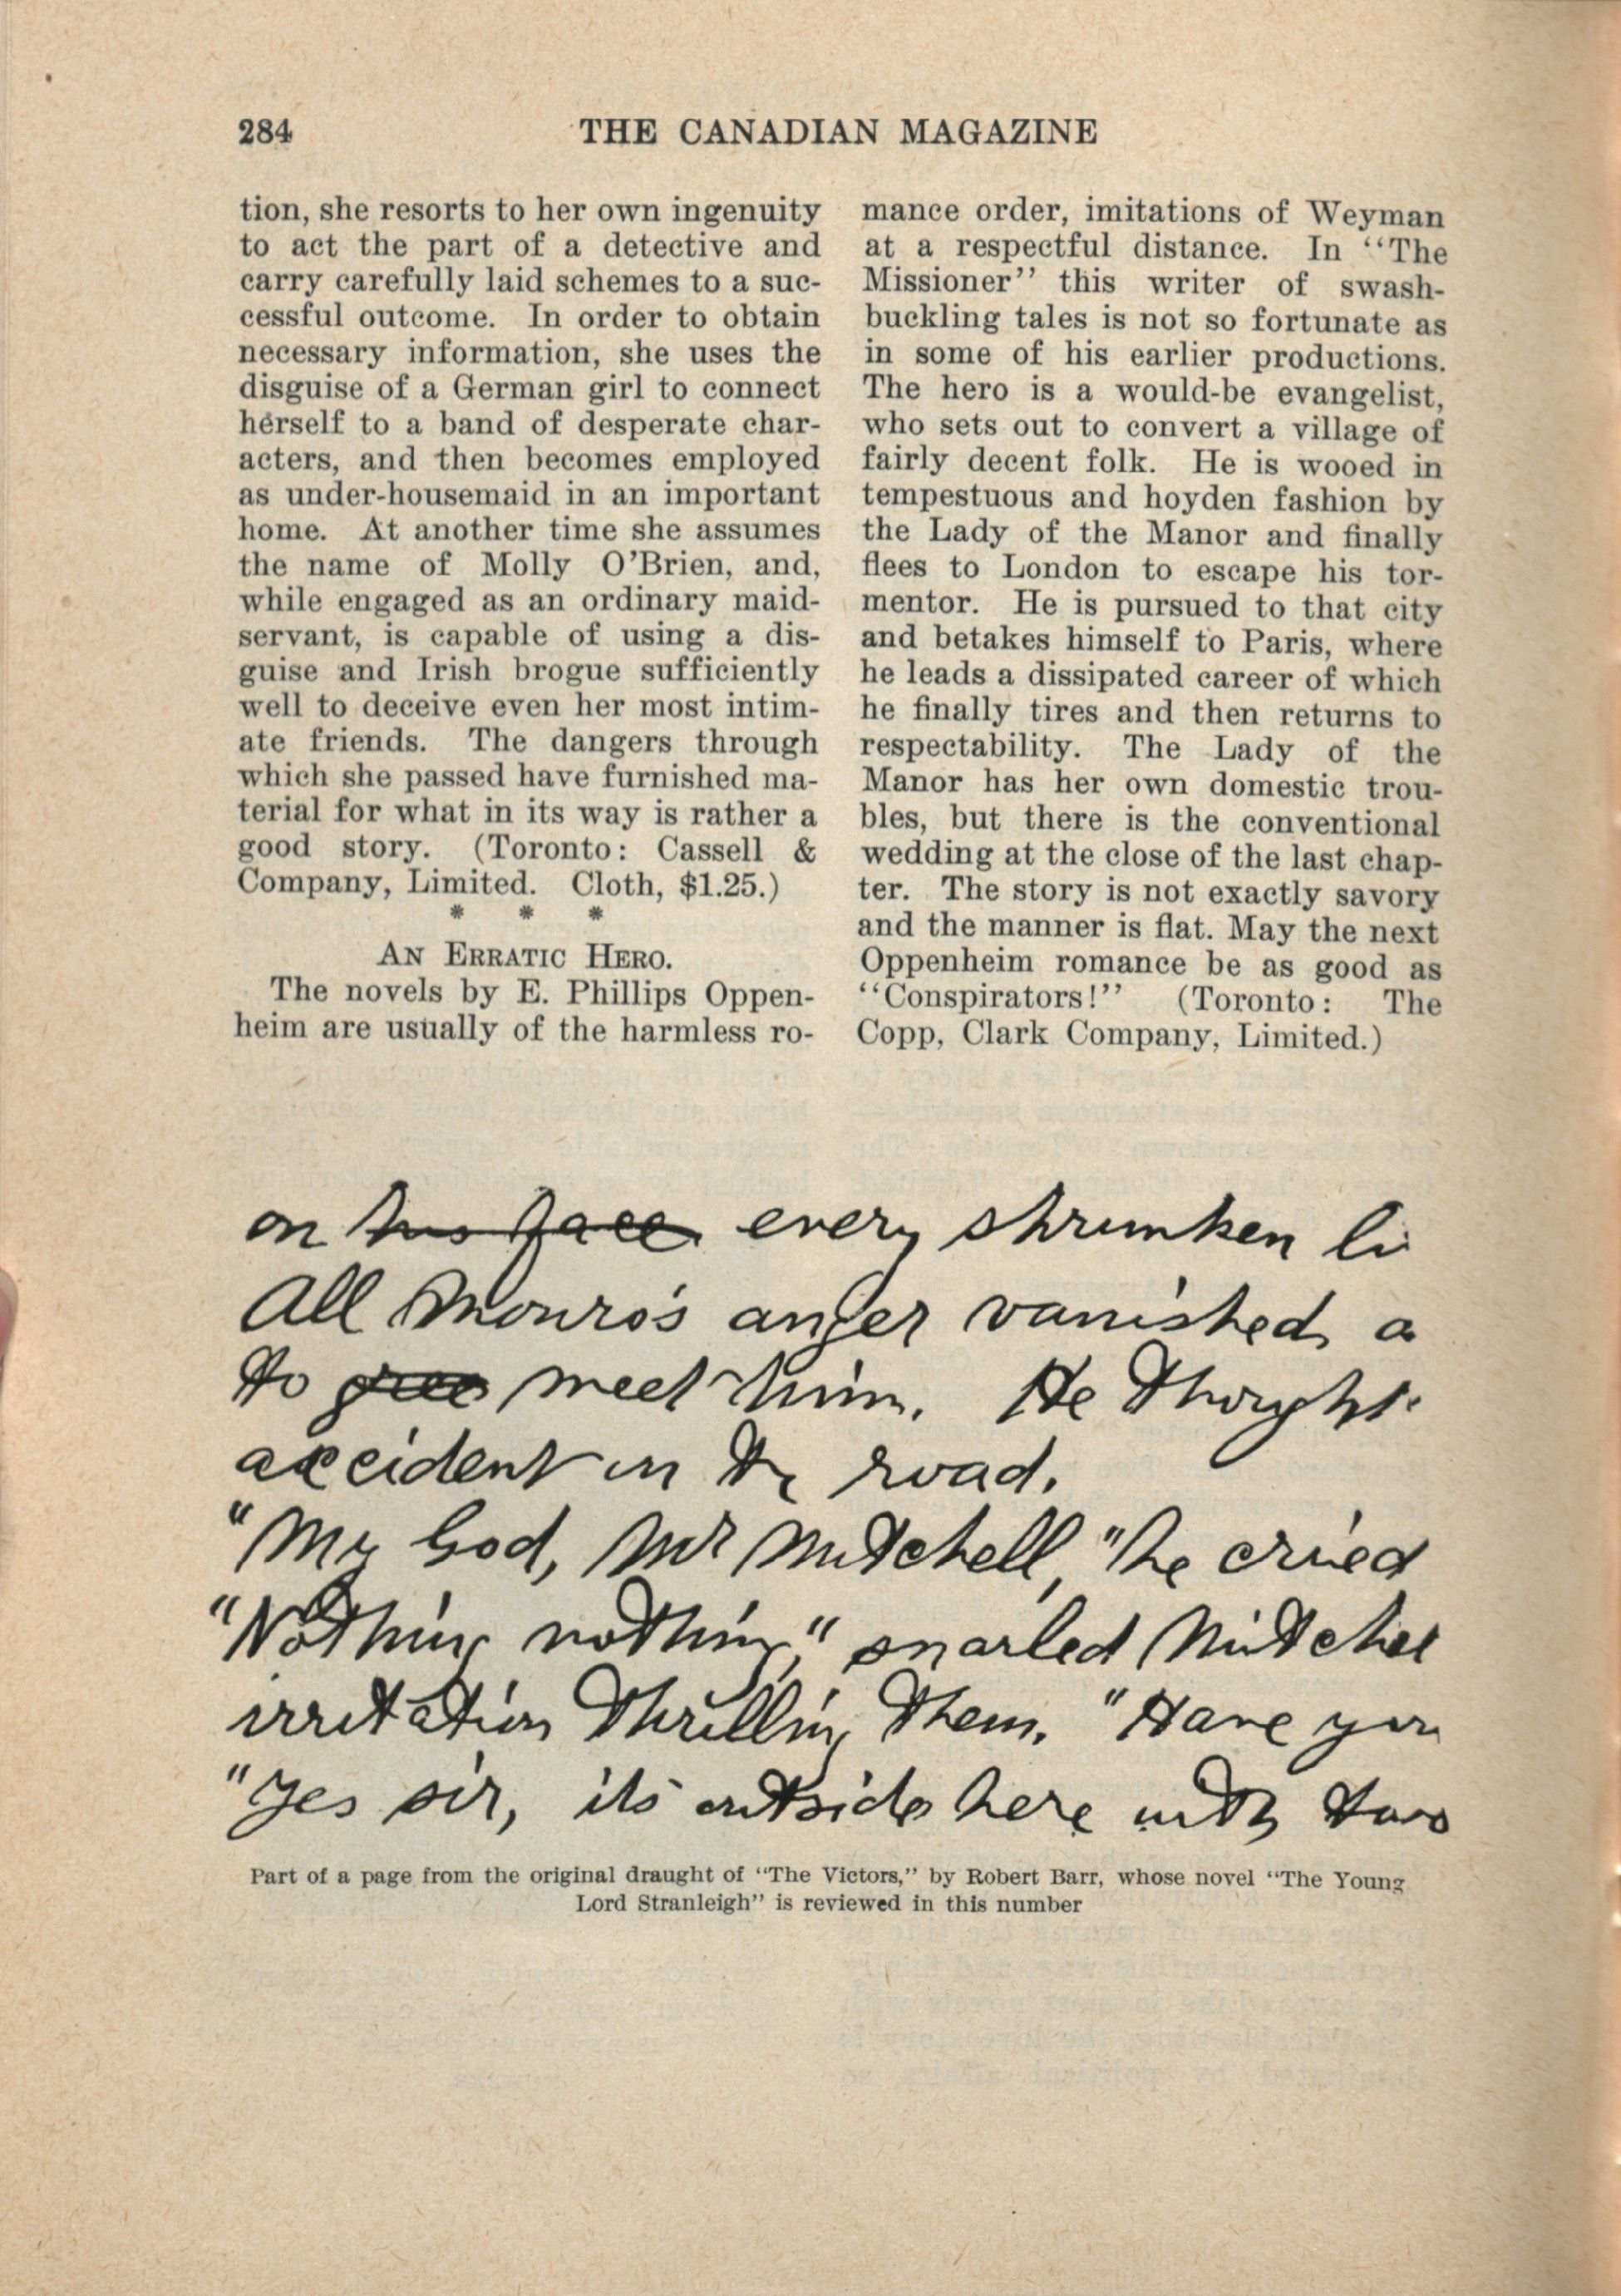 284
THE CANADIAN MAGAZINE
tion, she resorts to her own ingenuity
to act the part of a detective and
carry carefully laid schemes to a suc-
cessful outcome. In order to obtain
necessary information, she uses the
disguise of a German girl to connect
herself to a band of desperate char-
acters, and then becomes employed
as under-housemaid in an important
home. At another time she assumes
the name of Molly O'Brien, and,
while engaged as an ordinary maid-
servant, is capable of using a dis-
guise and Irish brogue sufficiently
well to deceive even her most intim-
ate friends. The dangers through
which she passed have furnished ma-
terial for what in its way is rather a
good story. (Toronto: Cassell &
Company, Limited. Cloth, $1.25.)
* * *
AN ERRATIC HERO.
The novels by E. Phillips Oppen-
heim are usually of the harmless ro-
mance order, imitations of Weyman
at a respectful distance. In "The
Missioner" this writer of swash-
buckling tales is not so fortunate as
in some of his earlier productions.
The hero is a would-be evangelist,
who sets out to convert a village of
fairly decent folk. He is wooed in
tempestuous and hoyden fashion by
the Lady of the Manor and finally
flees to London to escape his tor-
mentor. He is pursued to that city
and betakes himself to Paris, where
he leads a dissipated career of which
he finally tires and then returns to
respectability. The Lady of the
Manor has her own domestic trou-
bles, but there is the conventional
wedding at the close of the last chap-
ter. The story is not exactly savory
and the manner is flat. May the next
Oppenheim romance be as good as
"Conspirators!" (Toronto: The
Copp, Clark Company, Limited.)
on his face every shrunken li
All Monro's anger vanished, a
to meet him. He thought
accident in the road.
"My God, Mr Mitchell," he cried
"Nothing, nothing," snarled Mitchel
irritation thrilling them. "Have you
"Yes sir, it's outside here with two
Part of a page from the original draught of "The Victors," by Robert Barr, whose novel "The Young
Lord Stranleigh" is reviewed in this number